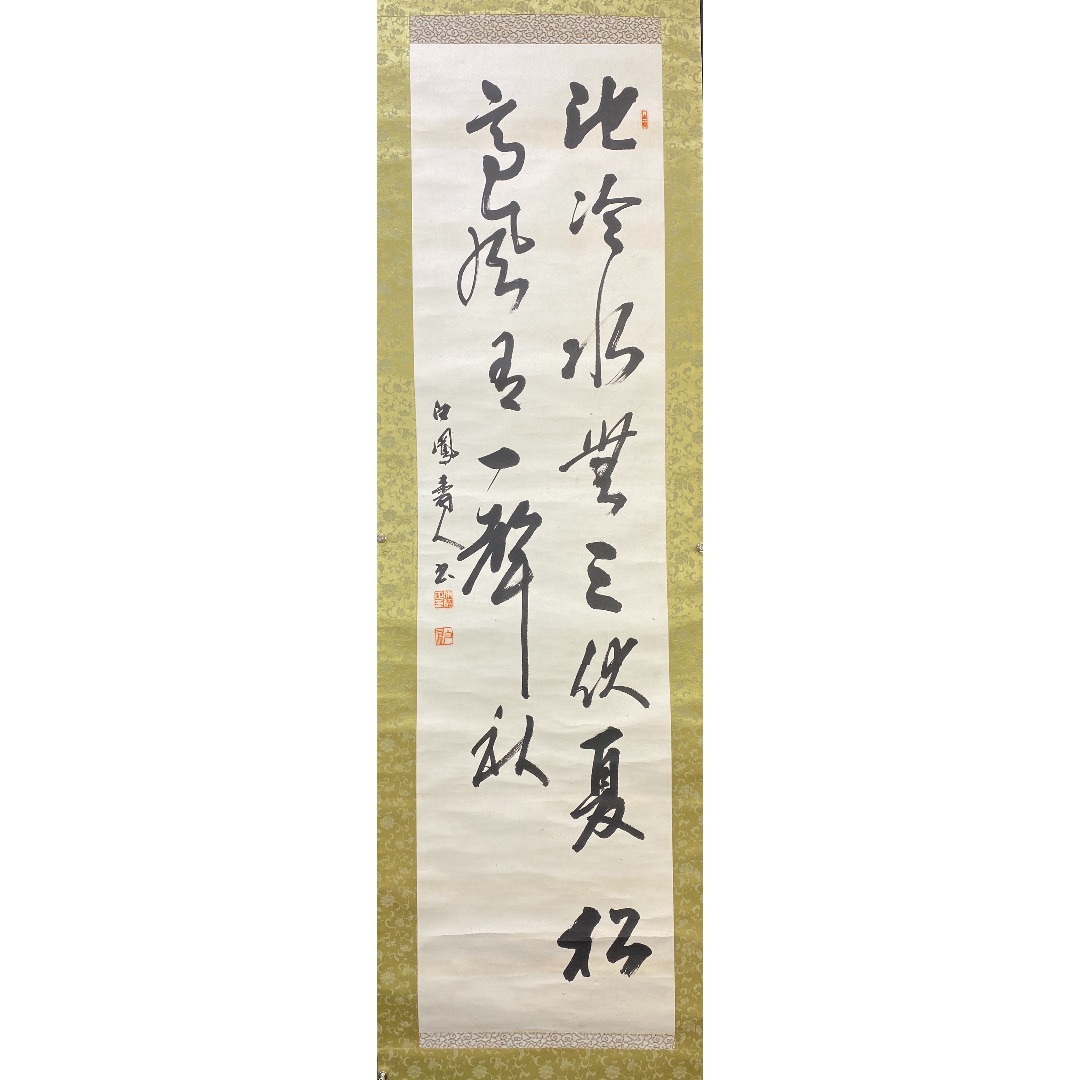 池冷水無三伏夏松
高風有一聲秋
鳳
人書